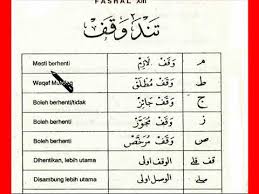 FASHAL XIII
تند وقف
Mesti berhenti وَقَفْ لَازِمْ م
Waqaf وَقَفْ مُطْلَقْ ط
Boleh berhenti/tidak وَقَفْ جَائِزْ ج
Boleh berhenti وَقَفْ مُجَوَّزْ ز
Boleh berhenti وَقَفْ مُرَخَّصْ ص
Dihentikan, lebih utama الوقف اولى قلى
Disambung lebih utama الوصل اولى صلى